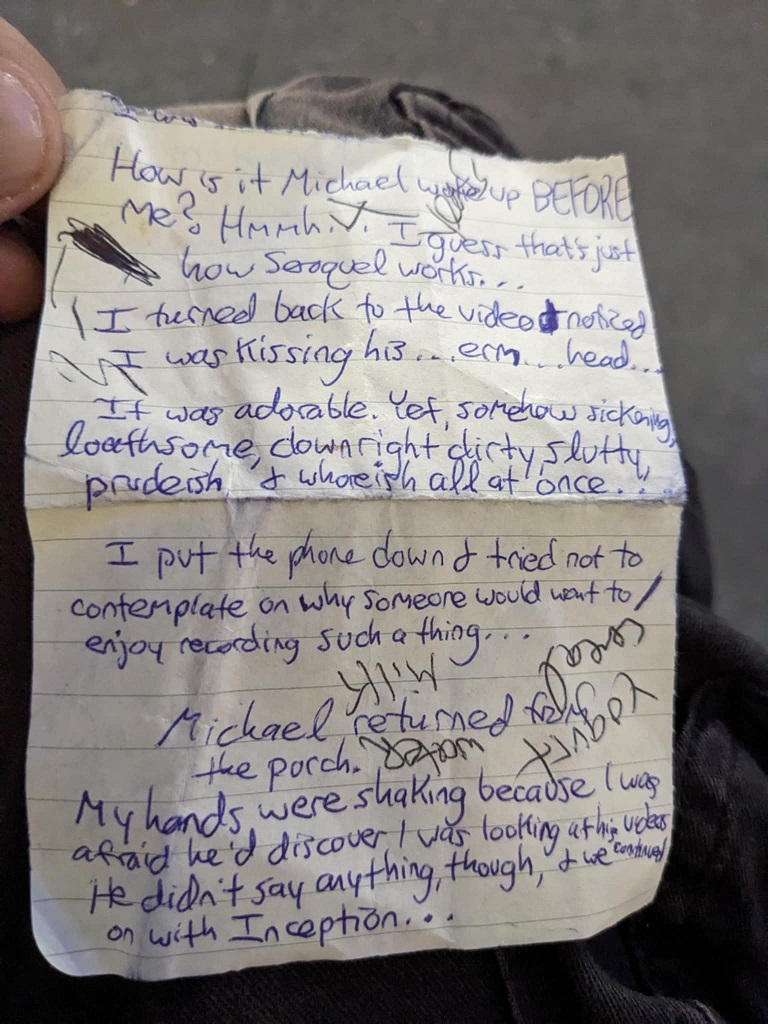 How is it Michael woke up BEFORE
Me? Hmmh... I guess that's just
how Seroquel works...
I turned back to the video & noticed
I was kissing his...erm...head...
It was adorable. Yet, somehow sickening,
loathsome, downright dirty, slutty,
prudeish, & whoreish all at once...
I put the phone down & tried not to
contemplate on why someone would want to/
enjoy recording such a thing...
cereal
Milk
yogurt
water
Michael returned from
the porch.
My hands were shaking because I was
afraid he'd discover I was looking at his videos
He didn't say anything, though, & we continued
on with Inception...